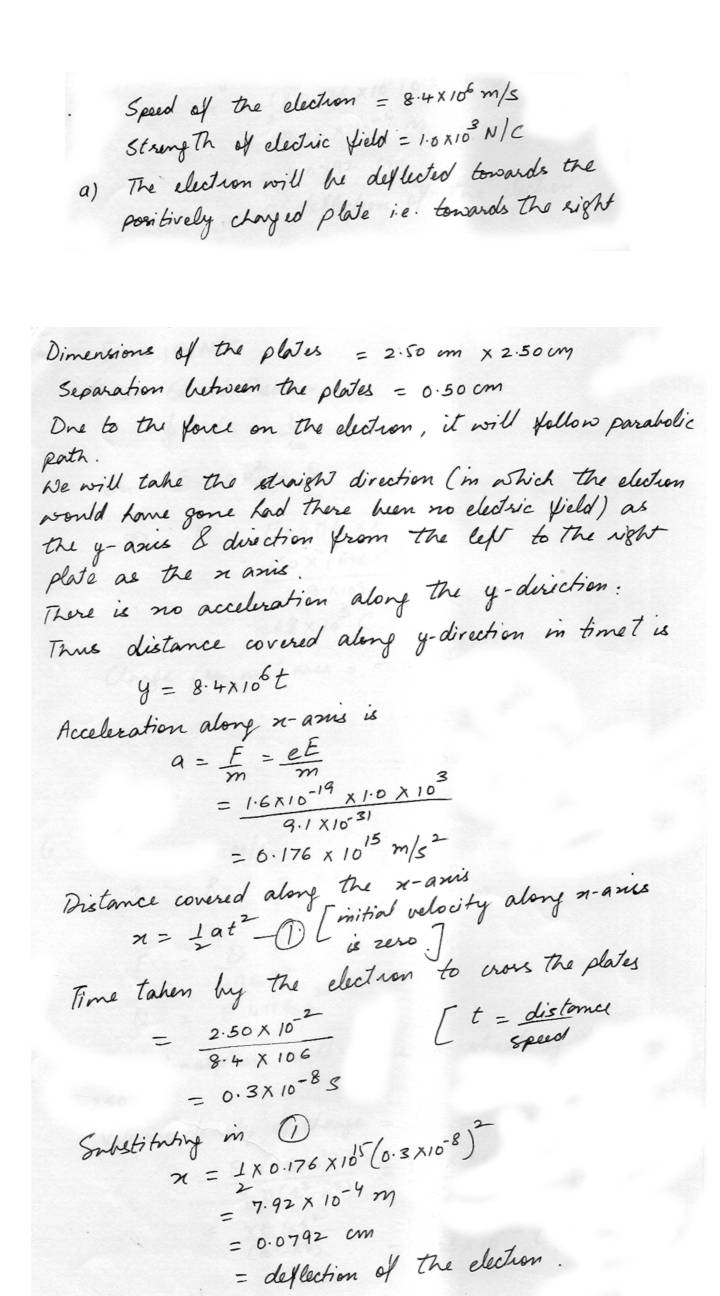 Speed of the electron = 8.4 x 10⁶ m/s
Strength of electric field = 1.0 x 10³ N/C
a) The electron will be deflected towards the
positively charged plate i.e. towards the right
Dimensions of the plates = 2.50 cm x 2.50 cm
Separation between the plates = 0.50 cm
Due to the force on the electron, it will follow parabolic
path.
We will take the straight direction (in which the electron
would have gone had there been no electric field) as
the y-axis & direction from the left to the right
plate as the x axis.
There is no acceleration along the y-direction.
Thus distance covered along y-direction in time t is
y = 8.4 x 10⁶ t
Acceleration along x-axis is
a = F/m = eE/m
= 1.6 x 10⁻¹⁹ x 1.0 x 10³ / 9.1 x 10⁻³¹
= 0.176 x 10¹⁵ m/s²
Distance covered along the x-axis
x = 1/2 at² — ① [initial velocity along x-axis
is zero.]
Time taken by the electron to cross the plates
= 2.50 x 10⁻² / 8.4 x 106 [ t = distance / speed
= 0.3 x 10⁻⁸ s
Substituting in ①
x = 1/2 x 0.176 x 10¹⁵ (0.3 x 10⁻⁸)²
= 7.92 x 10⁻⁴ m
= 0.0792 cm
= deflection of the electron.